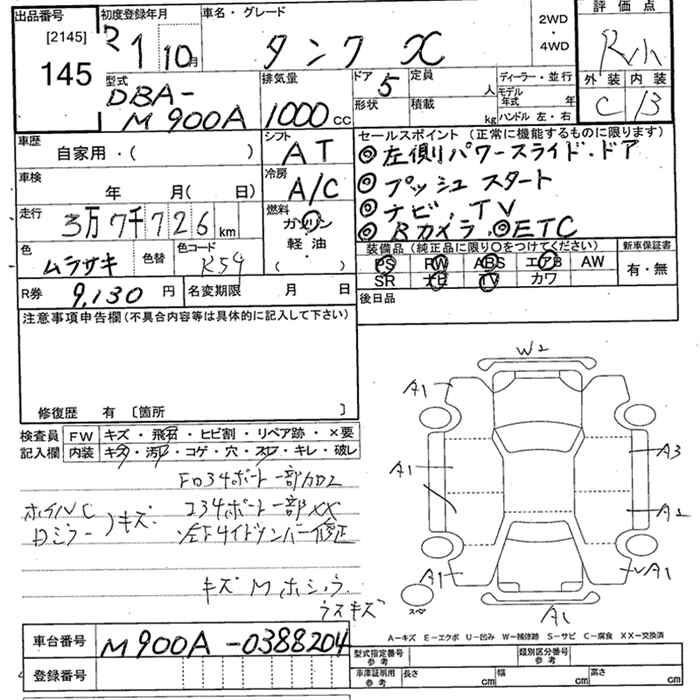 出品番号
[2145]
145
初度登録年月
R1 10月
車名・グレード
タンク X
2WD
・
4WD
評価点
R小
外装 内装
C B
型式
DBA-
M900A
排気量
1000 cc
ドア 5
定員 人
形状
積載 kg
ディーラー・並行
モデル年式 年
ハンドル 左・右
車歴
自家用・( )
シフト
AT
セールスポイント (正常に機能するものに限ります)
◎左側パワースライド・ドア
◎プッシュスタート
◎ナビ、TV
◎Bカメラ、◎ETC
車検
年 月( 日)
冷房
A/C
走行
3万7千726km
燃料
ガソリン
軽・油
( )
色
ムラサキ
色替
色コード
R59
装備品 (純正品に限り○をつけてください)
新車保証書
PS PW ABS エアB AW
SR ナビ TV カワ
有・無
R券
9,130 円
名変期限 月 日
後日品
注意事項申告欄 (不具合内容等は具体的に記入して下さい)
修復歴 有 〔箇所 〕
検査員
記入欄
FW キズ・飛石・ヒビ割・リペア跡・×要
内装 キズ・汚レ・コゲ・穴・スレ・キレ・破レ
ホイルC
ドミラー
)キズ.
キズ
ウスキズ
W2
A1
A1
A1
A1
A3
A2
A1
A1
スペ
A-キズ E-エクボ U-凹み W-補修跡 S-サビ C-腐食 XX-交換済
車台番号
M900A-0388204
登録番号
型式指定番号
参考
類別区分番号
参考
車庫証明用
参考
長さ cm
幅 cm
高さ cm